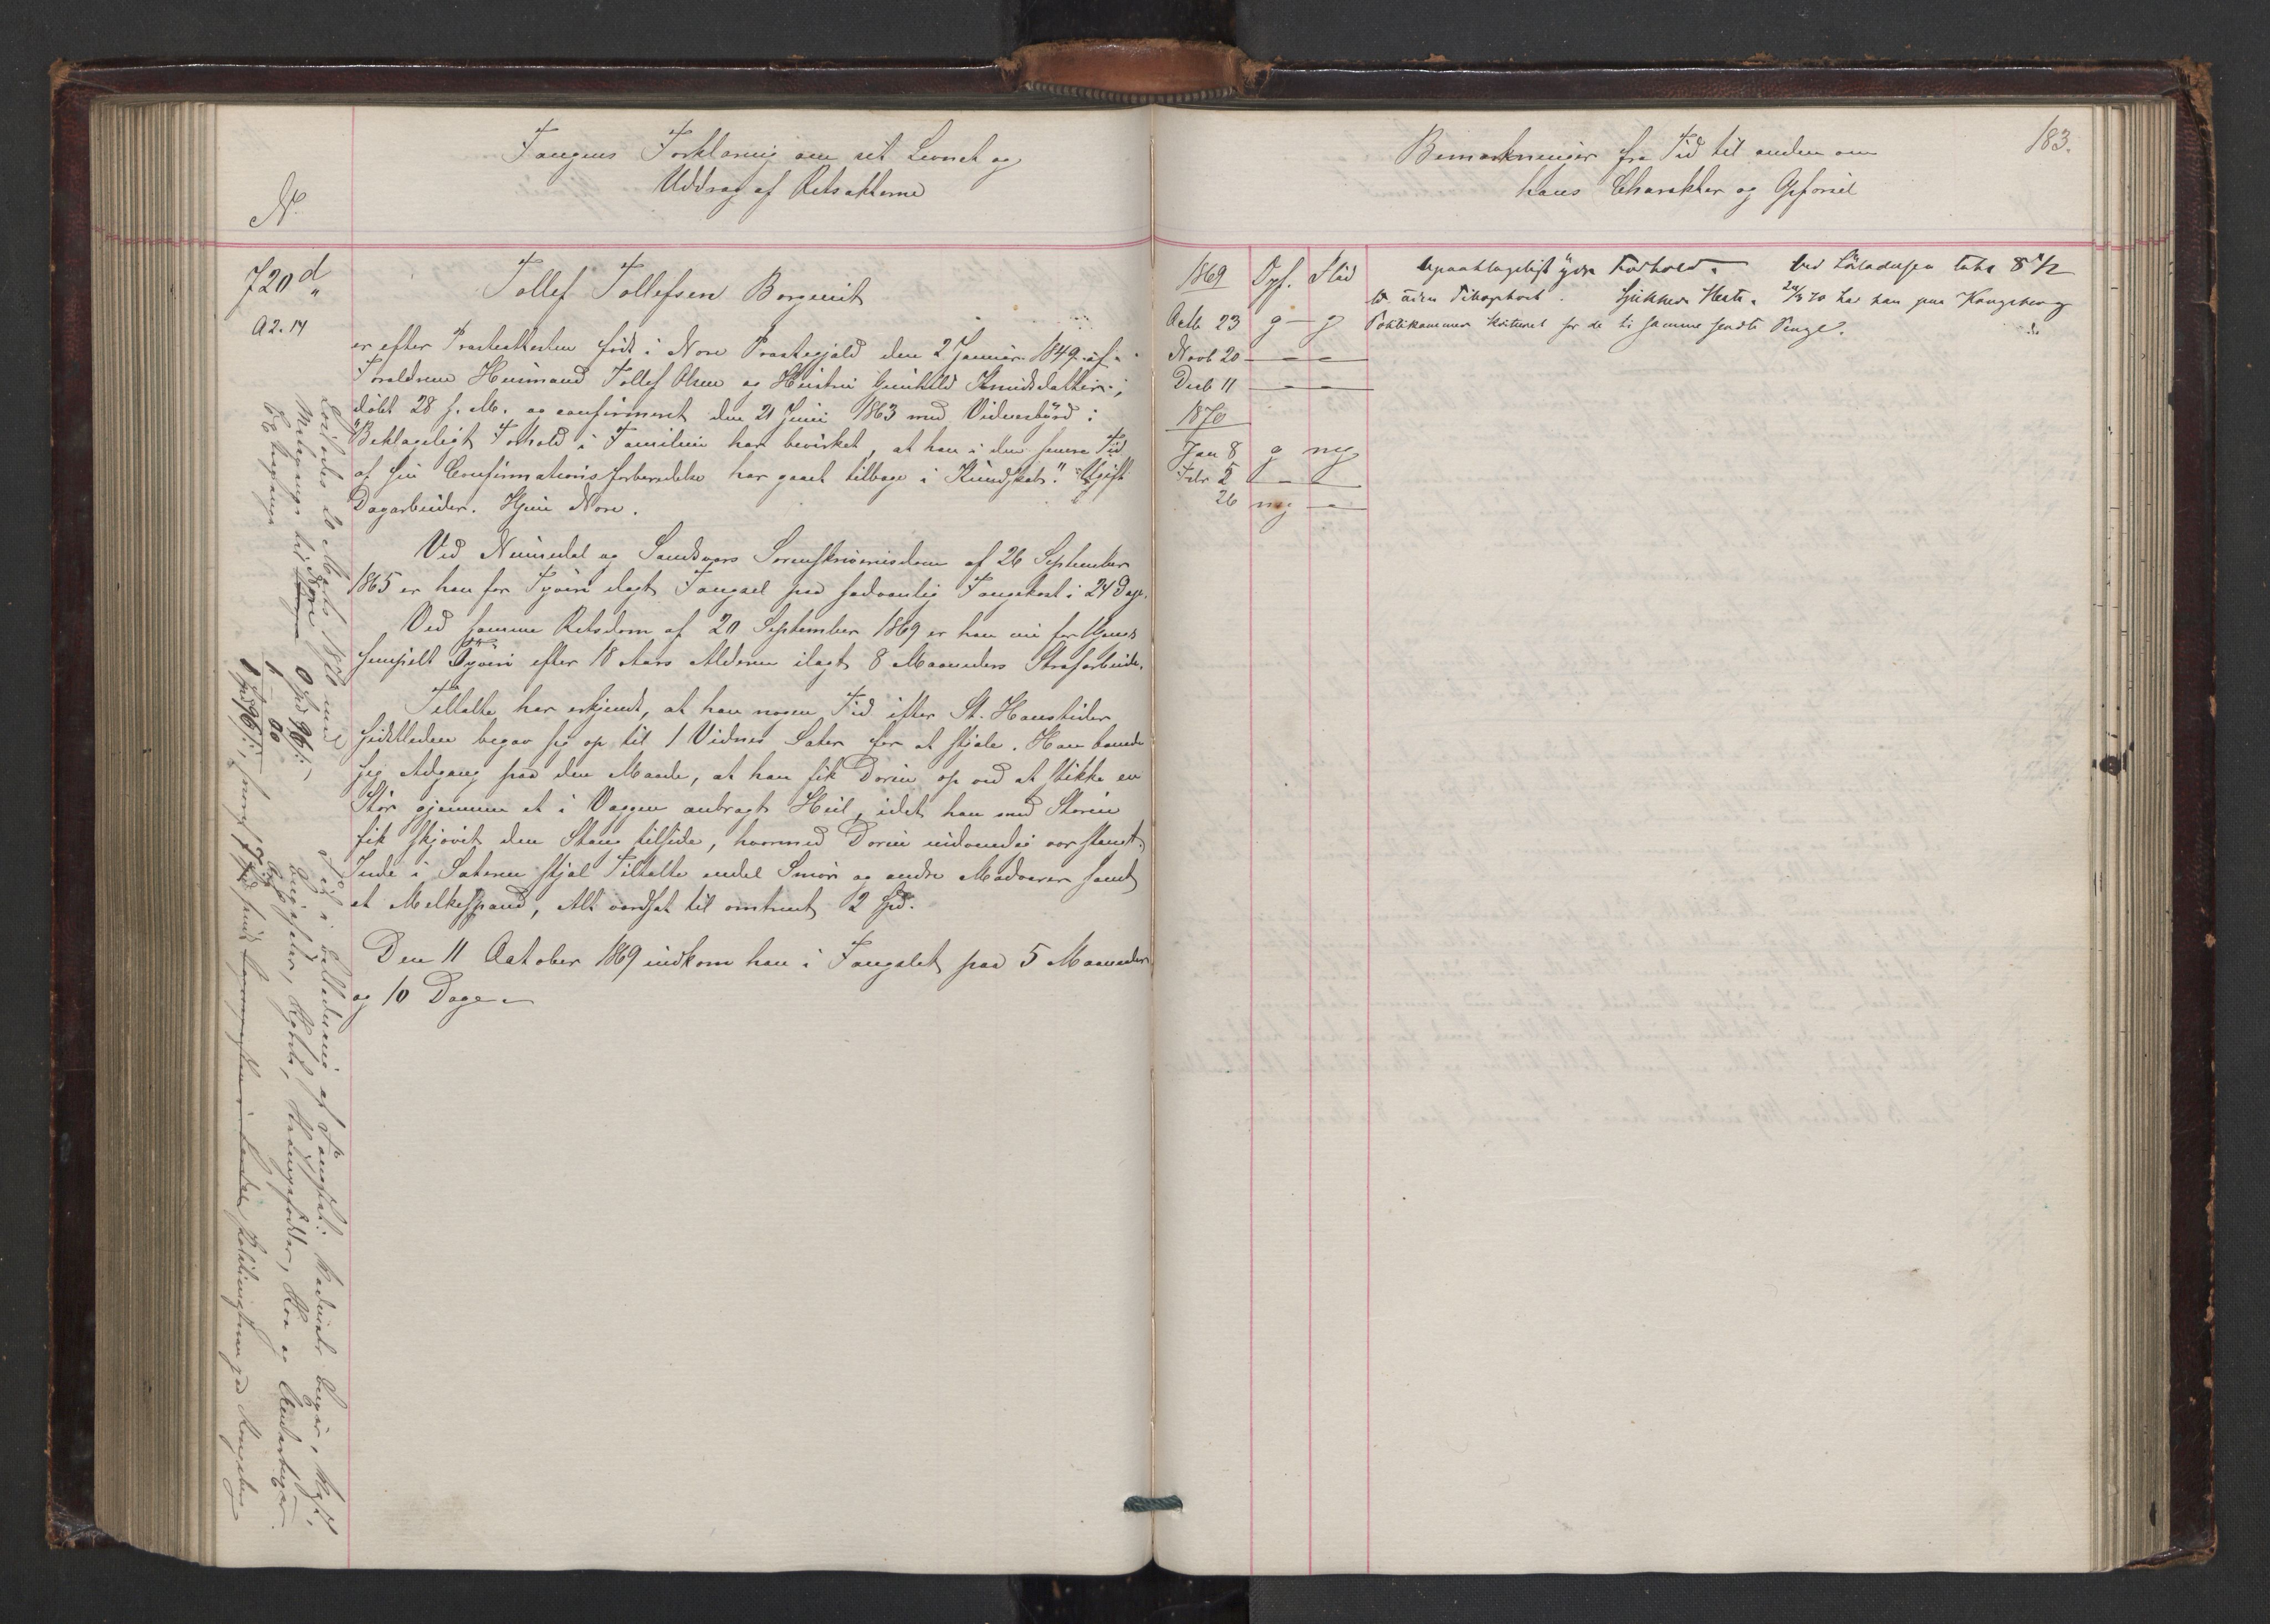 Fangens Forklaring om sit Levnet og
Uddrag af Retsakterne
No
720 d
A2.14
Tollef Tollefsen Borgemit
er efter Præsteattesten født i Nore Præstegjæld den 2 Januar 1849 af
Forældrene Husmand Tollef Olsen og Hustru Gunhild Knudsdatter;
døbt 28 s. M. og confirmeret den 21 Juni 1863 med Vidnesbyrd:
"Beklageligt Forhold i Familien har bevirket, at han i den senere Tid
af sin Confirmationsforberedelse har gaaet tilbage i Kundskab." Ugift
Dagarbeider. Hjem Nore.
Ved Numedal og Sandsværs Sorenskriverisdom af 26 September
1865 er han for Tyveri ilagt Fængsel paa sædvanlig Fangekost i 24 Dage.
Ved samme Retsdom af 20 September 1869 er han nu for 1 Gang
simpelt Tyveri efter 18 Aars Alderen ilagt 8 Maaneders Strafarbeide.
Tiltalte har erkjendt, at han nogen Tid efter St. Hanstider
sidstleden begav sig op til 1 Vidnes Sæter for at stjæle. Han banede
sig Adgang paa den Maade, at han fik Døren op ved at stikke en
Stør gjennem et i Væggen anbragt Hul, idet han med Støren
fik skjøvet den Stang tilside, hvormed Døren indvendig var stængt.
Inde i Sæteren stjal Tiltalte endel Smør og andre Madvarer samt
et Melkespand, Alt værdsat til omtrent 2 Spd.
Den 11 October 1869 indkom han i Fængslet paa 5 Maaneder
og 10 Dage.
Løslodes 20 Marts 1870 med
Medgangs til Nore 0 Spd 96 s.
1
1 Spd 96 s., hvoraf
Spd sendt Politimesteren paa Kongsberg
Tøi i Behold af Fængslet: Vadmels Buxer, Vest,
Buxeseler, Skjorte, Sko og Underbuxer.
Bemærkninger fra Tid til anden om
hans Charakter og Opførsel
183.
1869 Opf. Flid
Octb 23 g — g
Novb 20 — —
Decb 11 — —
1870
Jan 8 g mg
Febr 5 — —
26 mg —
Upaaklageligt ydre Forhold. Ved Løsladelsen Tabe 8 1/2
℔ uden Sjukker Heste. 24/3 70 har han paa Kongsberg
Politikammer kvitteret for de til samme sendte Penge.